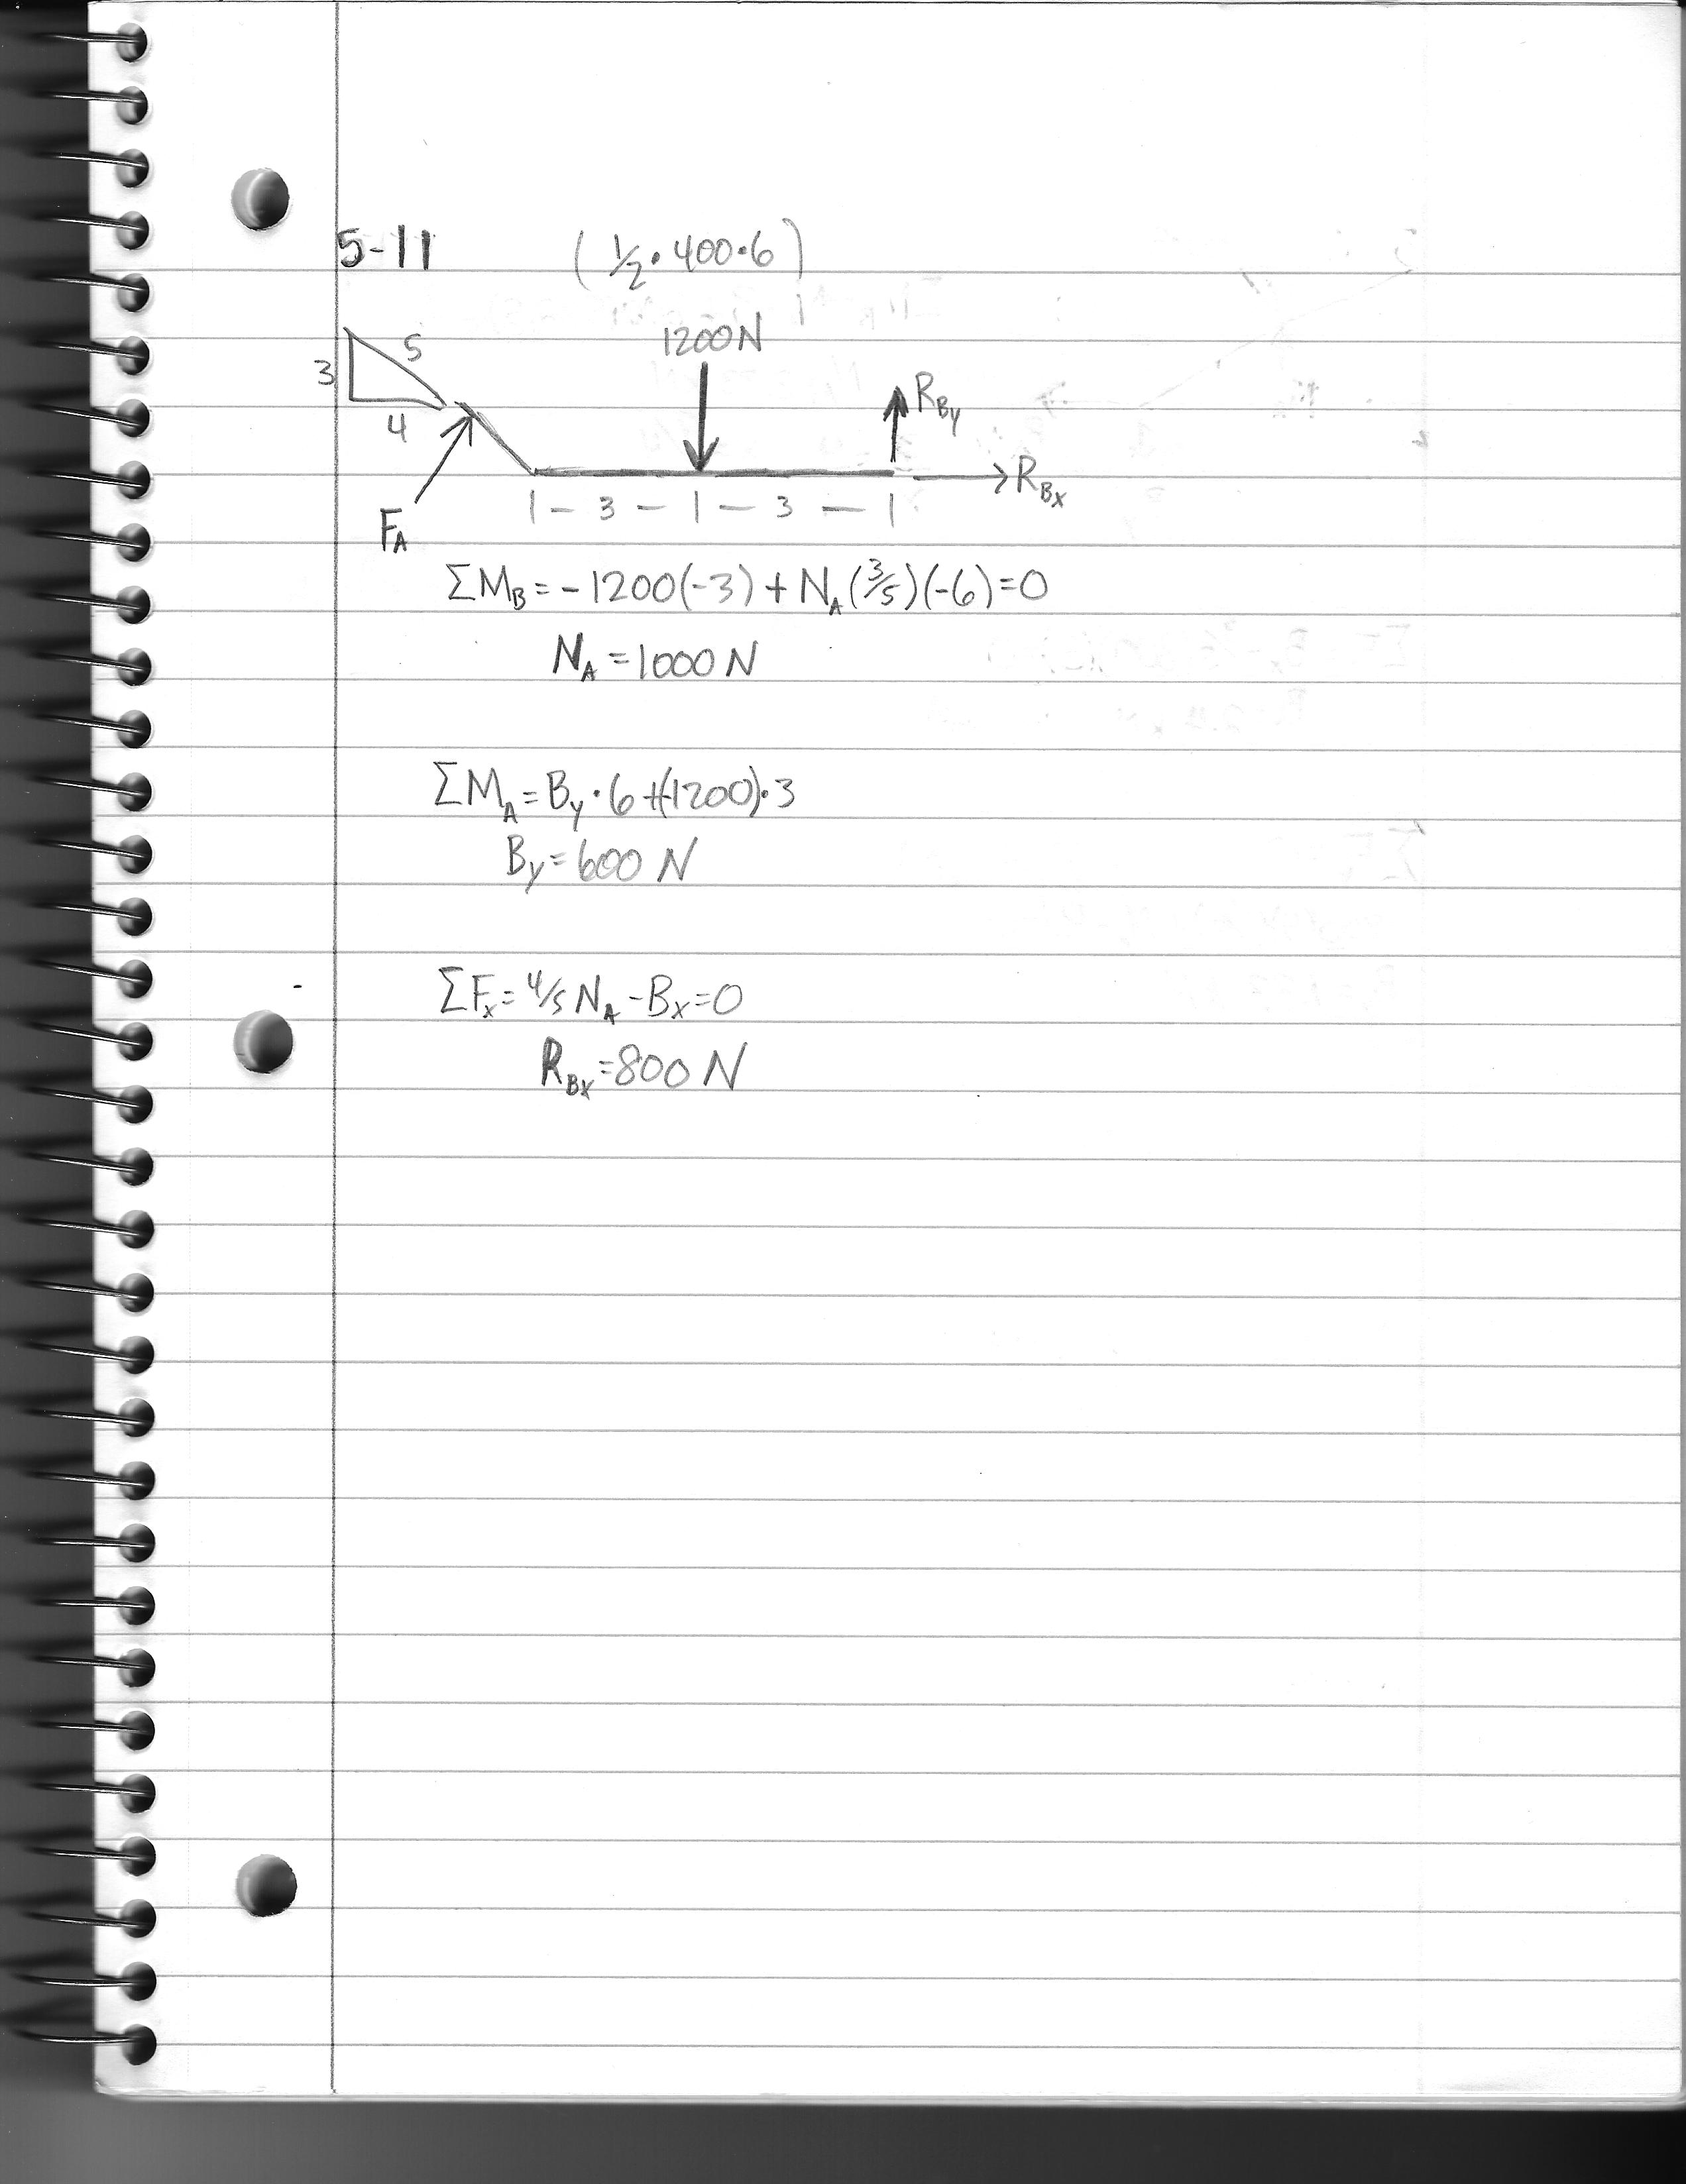 5-11 (1/2·400·6)
5
3
4
1200N
R_By
R_Bx
F_A
|- 3 -|- 3 -|
ΣM_B = -1200(-3) + N_A(3/5)(-6)=0
N_A = 1000 N
ΣM_A = By·6+(-1200)·3
By = 600 N
ΣF_x = 4/5 N_A - B_x = 0
R_Bx = 800 N